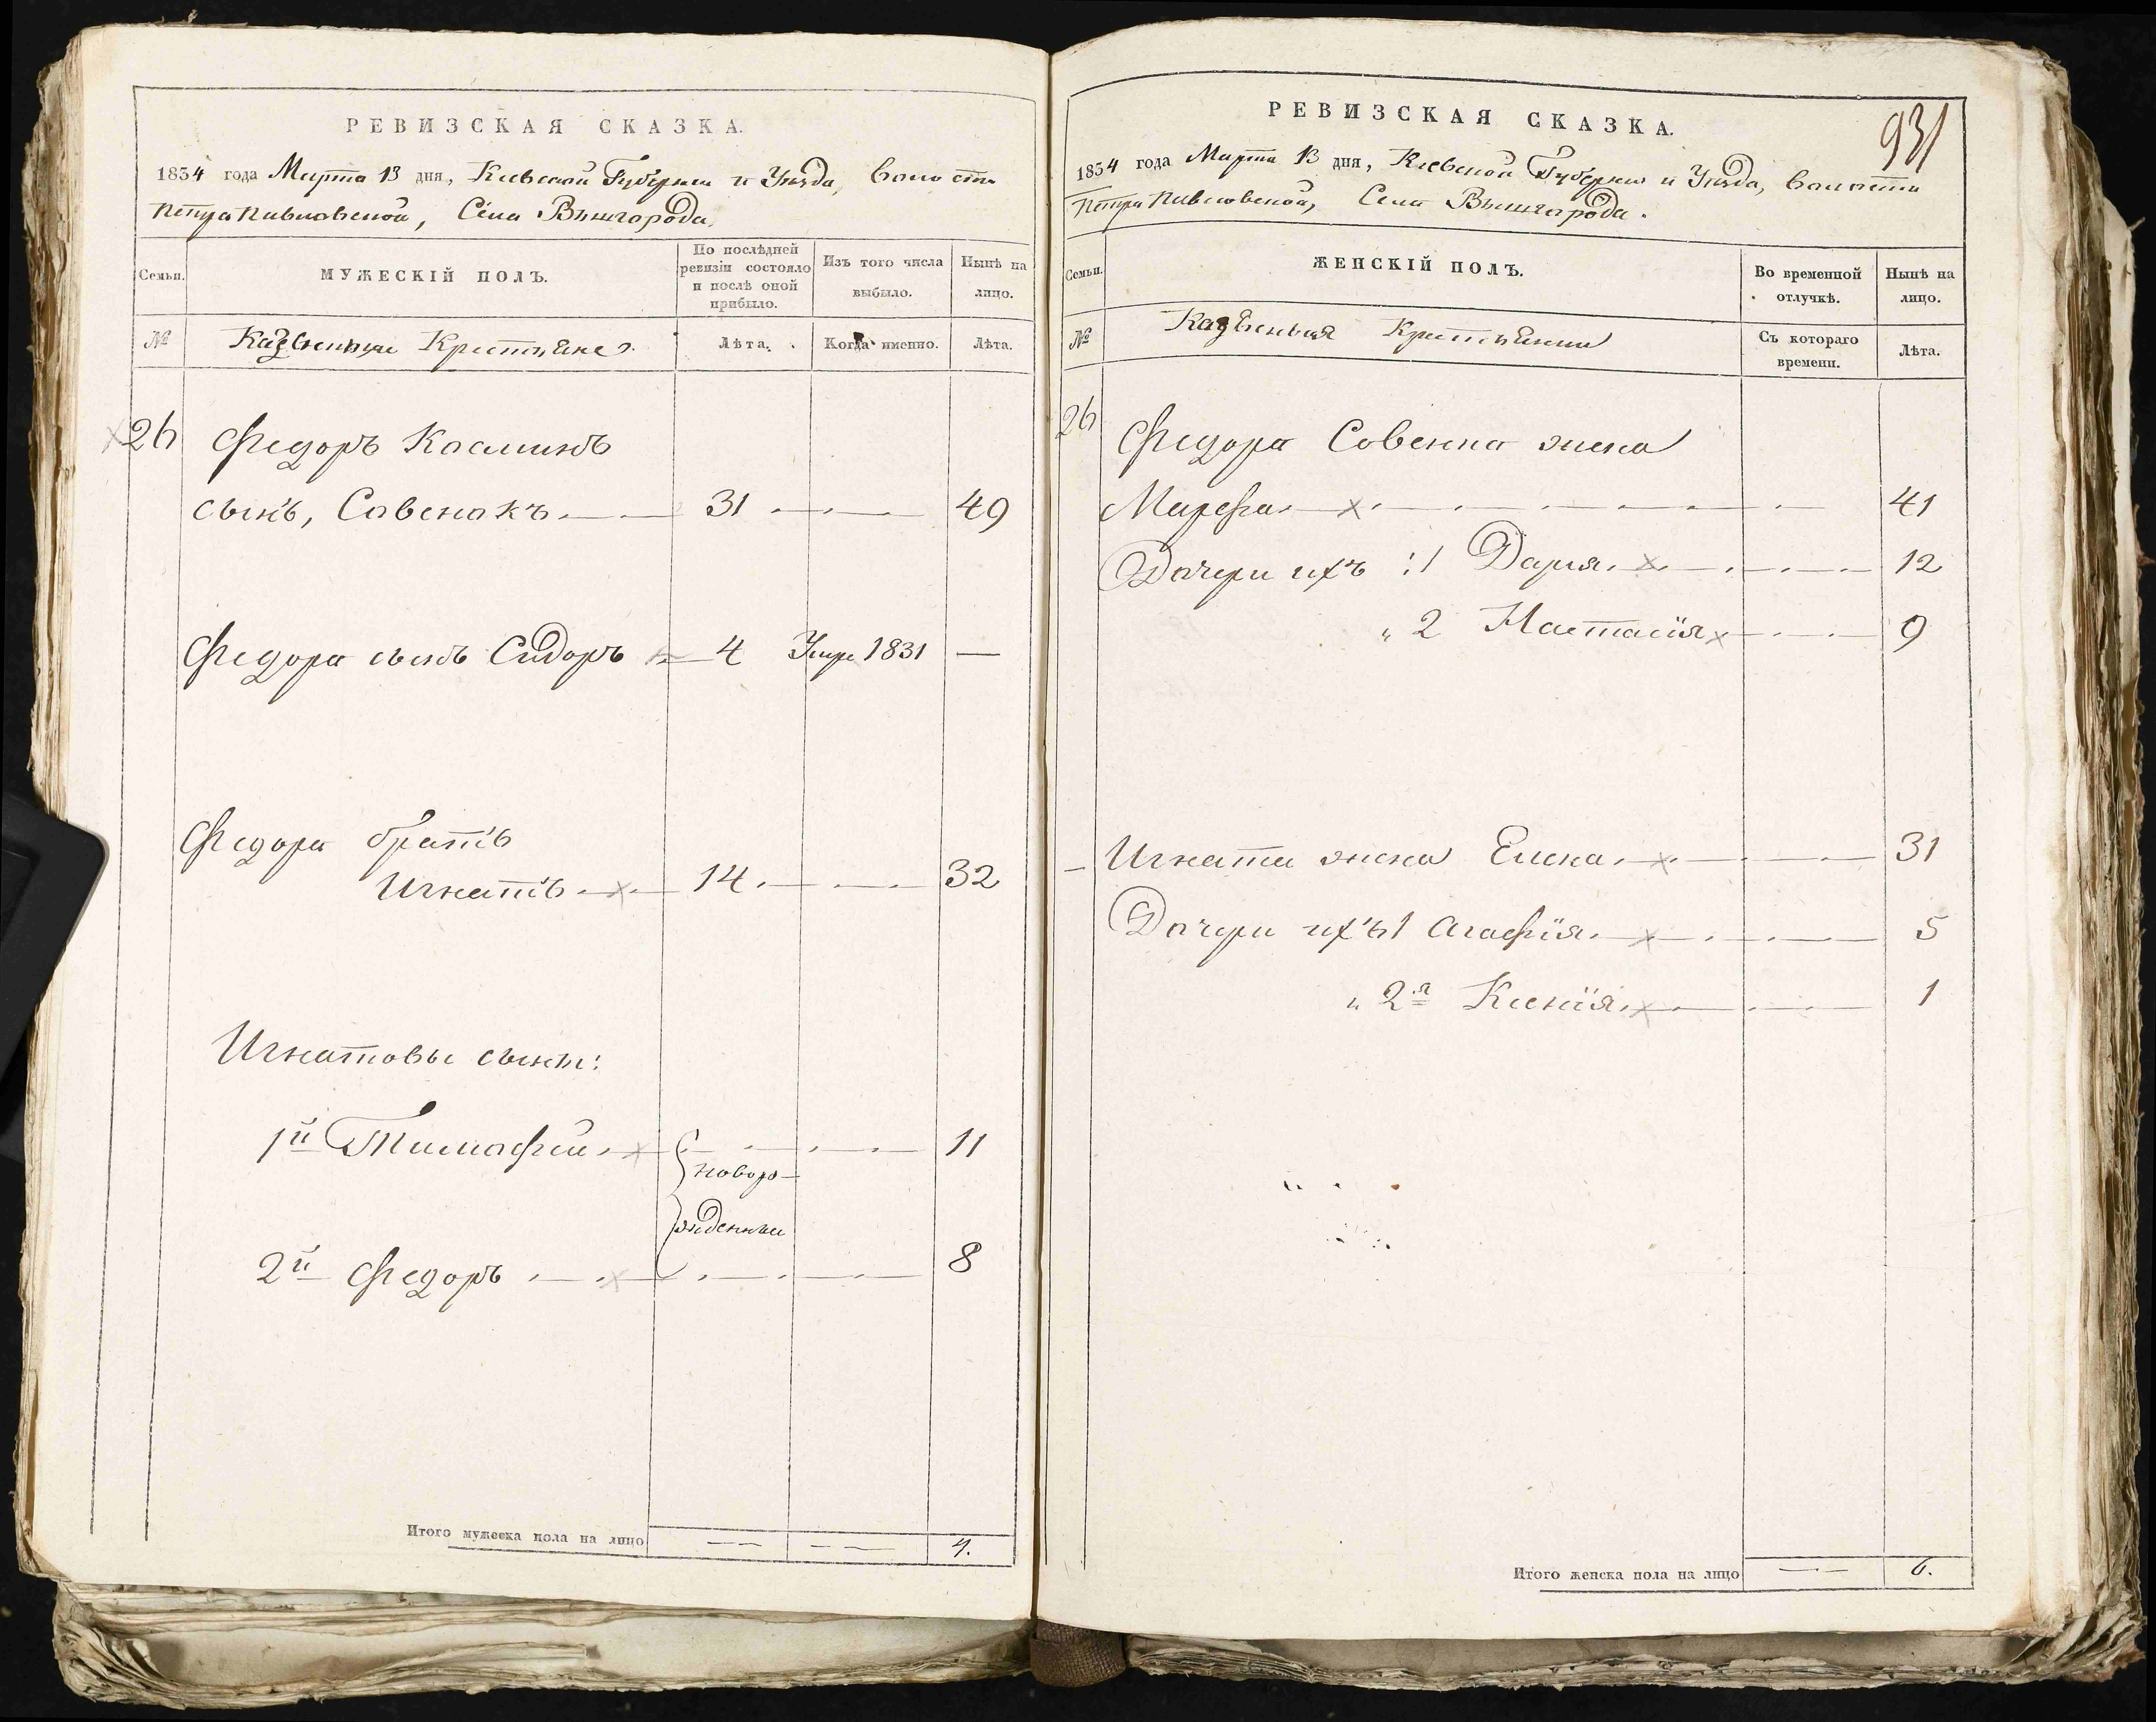 РЕВИЗСКАЯ СКАЗКА.
1834 года Марта 13 дня, Киевской Губернии и Уѣзда, Волости
Петро Павловской, Села Вышгорода.
Семьи.
МУЖЕСКІЙ ПОЛЪ.
По послѣдней ревизіи состояло и послѣ оной прибыло.
Изъ того числа выбыло.
Нынѣ на лицо.
№
Казенные Крестьяне.
Лѣта.
Когда именно.
Лѣта.
26 Федоръ Косминъ
сынъ, Савенокъ 31 49
Федора сынъ Сидоръ 4 Умре 1831 —
Федора братъ
Игнатъ 14 32
Игнатовы сыны:
1й Тимофей 11
новоро-
жденные
2й Федоръ 8
Итого мужеска пола на лицо — — 4.
931
РЕВИЗСКАЯ СКАЗКА.
1834 года Марта 13 дня, Киевской Губернии и Уѣзда, Волости
Петро Павловской, Села Вышгорода.
Семьи.
ЖЕНСКІЙ ПОЛЪ.
Во временной отлучкѣ.
Нынѣ на лицо.
№
Казенныя Крестьянки
Съ котораго времени.
Лѣта.
26 Федора Совенка жена
Марфа 41
Дочери ихъ: 1 Дарія 12
„ 2 Настасія 9
Игната жена Елена 31
Дочери ихъ 1 Агафія 5
„ 2я Ксенія 1
Итого женска пола на лицо — 6.